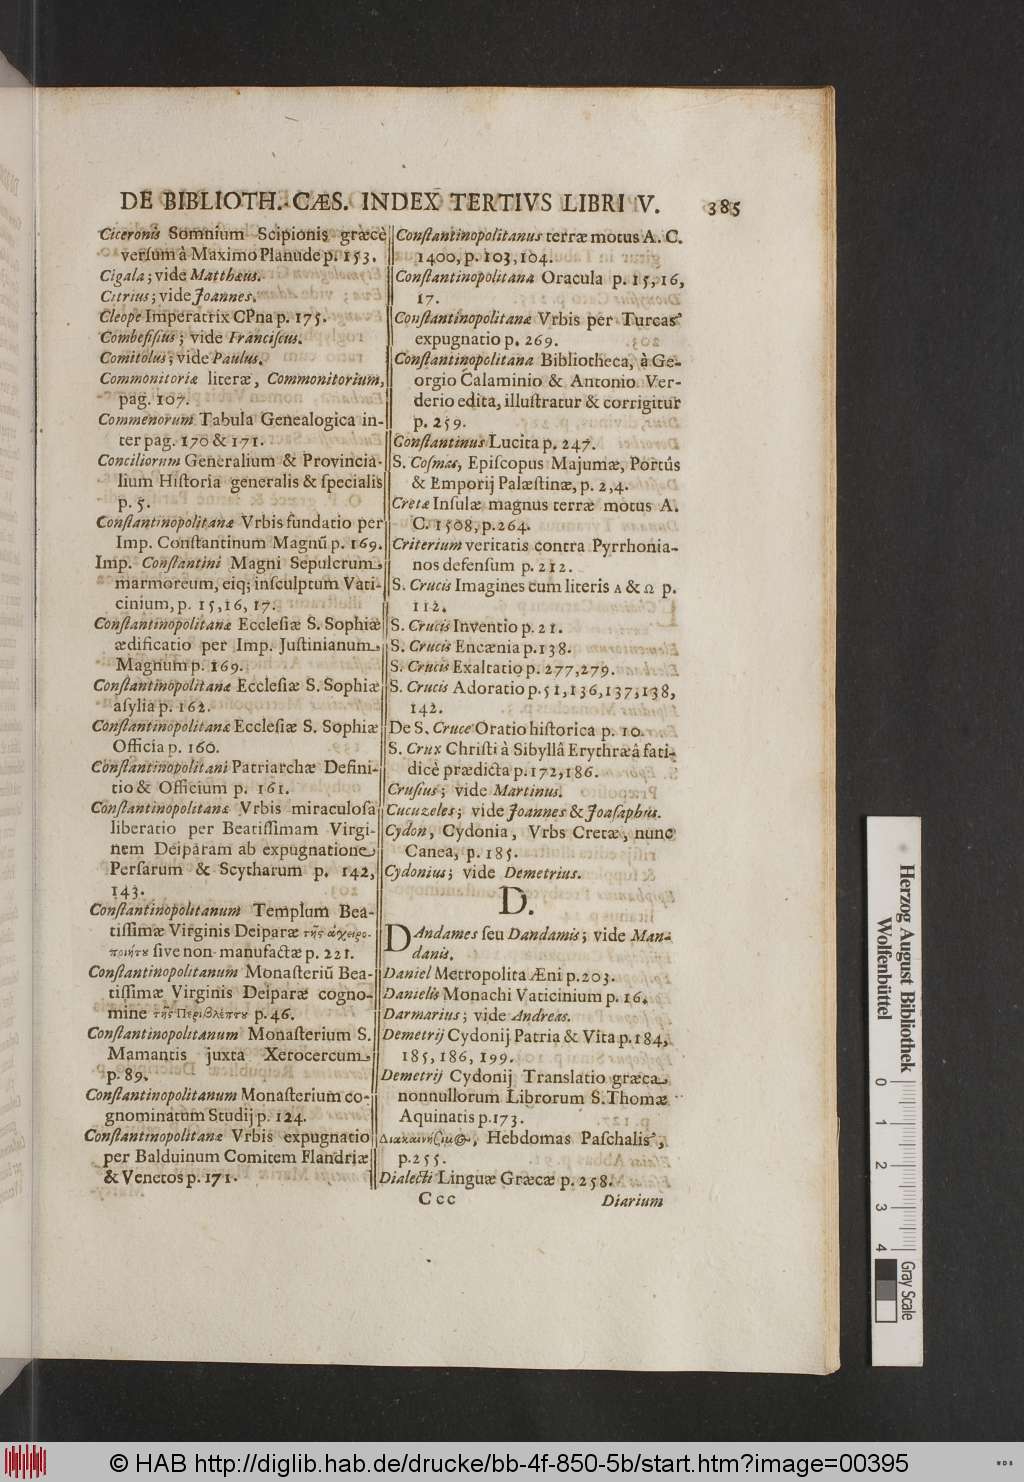 DE BIBLIOTH. CÆS. INDEX TERTIVS LIBRI V. 385
Ciceronis Somnium Scipionis græcè
versum à Maximo Planude p. 153.
Cigala; vide Matthæus.
Citrius; vide Joannes.
Cleope Imperatrix CPna p. 175.
Combefisius; vide Franciscus.
Comitolus; vide Paulus.
Commonitoriæ literæ, Commonitorium,
pag. 107.
Commenorum Tabula Genealogica in-
ter pag. 170 & 171.
Conciliorum Generalium & Provincia-
lium Historia generalis & specialis
p. 5.
Constantinopolitanæ Vrbis fundatio per
Imp. Constantinum Magnū p. 169.
Imp. Constantini Magni Sepulcrum
marmoreum, eiq; insculptum Vati-
cinium, p. 15, 16, 17.
Constantinopolitanæ Ecclesiæ S. Sophiæ
ædificatio per Imp. Justinianum
Magnum p. 169.
Constantinopolitanæ Ecclesiæ S. Sophiæ
asylia p. 162.
Constantinopolitanæ Ecclesiæ S. Sophiæ
Officia p. 160.
Constantinopolitani Patriarchæ Defini-
tio & Officium p. 161.
Constantinopolitanæ Vrbis miraculosa
liberatio per Beatissimam Virgi-
nem Deiparam ab expugnatione
Persarum & Scytharum p. 142,
143.
Constantinopolitanum Templum Bea-
tissimæ Virginis Deiparæ τῆς ἀχειρο-
ποιήτȣ sive non manufactæ p. 221.
Constantinopolitanum Monasteriū Bea-
tissimæ Virginis Deiparæ cogno-
mine τῆς Περιβλέπτȣ p. 46.
Constantinopolitanum Monasterium S.
Mamantis juxta Xerocercum
p. 89.
Constantinopolitanum Monasterium co-
gnominatum Studij p. 124.
Constantinopolitanæ Vrbis expugnatio
per Balduinum Comitem Flandriæ
& Venetos p. 171.
Constantinopolitanus terræ motus A. C.
1400, p. 103, 104.
Constantinopolitana Oracula p. 15, 16,
17.
Constantinopolitanæ Vrbis per Turcas
expugnatio p. 269.
Constantinopolitana Bibliotheca, à Ge-
orgio Calaminio & Antonio Ver-
derio edita, illustratur & corrigitur
p. 259.
Constantinus Lucita p. 247.
S. Cosmas, Episcopus Majumæ, Portûs
& Emporij Palæstinæ, p. 2, 4.
Cretæ Insulæ magnus terræ motus A.
C. 1508, p. 264.
Criterium veritatis contra Pyrrhonia-
nos defensum p. 212.
S. Crucis Imagines cum literis Α & Ω p.
112.
S. Crucis Inventio p. 21.
S. Crucis Encænia p. 138.
S. Crucis Exaltatio p. 277, 279.
S. Crucis Adoratio p. 51, 136, 137, 138,
142.
De S. Cruce Oratio historica p. 10.
S. Crux Christi à Sibyllâ Erythræâ fati-
dicè prædicta p. 172, 186.
Crusius; vide Martinus.
Cucuzeles; vide Joannes & Joasaphus.
Cydon, Cydonia, Vrbs Cretæ, nunc
Canea, p. 185.
Cydonius; vide Demetrius.
D.
DAndames seu Dandamis; vide Man-
danis.
Daniel Metropolita Æni p. 203.
Danielis Monachi Vaticinium p. 16.
Darmarius; vide Andreas.
Demetrij Cydonij Patria & Vita p. 184,
185, 186, 199.
Demetrij Cydonij Translatio græca
nonnullorum Librorum S. Thomæ
Aquinatis p. 173.
Διακαινήσιμος, Hebdomas Paschalis,
p. 255.
Dialecti Linguæ Græcæ p. 258.
Ccc Diarium
Herzog August Bibliothek
Wolfenbüttel
0 1 2 3 4
Gray Scale
© HAB http://diglib.hab.de/drucke/bb-4f-850-5b/start.htm?image=00395